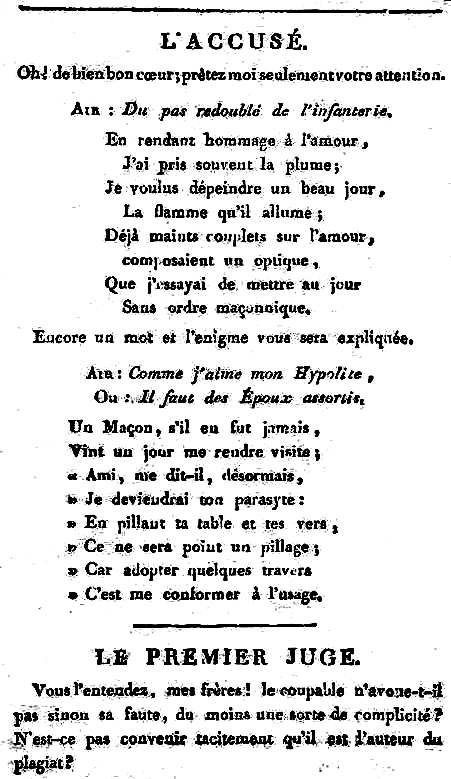 L'ACCUSÉ.
Oh! de bien bon cœur; prêtez moi seulement votre attention.
AIR : Du pas redoublé de l'infanterie.
En rendant hommage à l'amour,
J'ai pris souvent la plume;
Je voulus dépeindre un beau jour,
La flamme qu'il allume;
Déjà maints couplets sur l'amour,
composaient un optique,
Que j'essayai de mettre au jour
Sans ordre maçonnique.
Encore un mot et l'enigme vous sera expliquée.
AIR : Comme j'aime mon Hypolite,
OU : Il faut des Époux assortis.
Un Maçon, s'il en fut jamais,
Vint un jour me rendre visite;
« Ami, me dit-il, désormais,
» Je deviendrai ton parasyte :
» En pillant ta table et tes vers,
» Ce ne sera point un pillage;
» Car adopter quelques travers
» C'est me conformer à l'usage.
LE PREMIER JUGE.
Vous l'entendez, mes frères! le coupable n'avoue-t-il
pas sinon sa faute, du moins une sorte de complicité?
N'est-ce pas convenir tacitement qu'il est l'auteur du
plagiat?